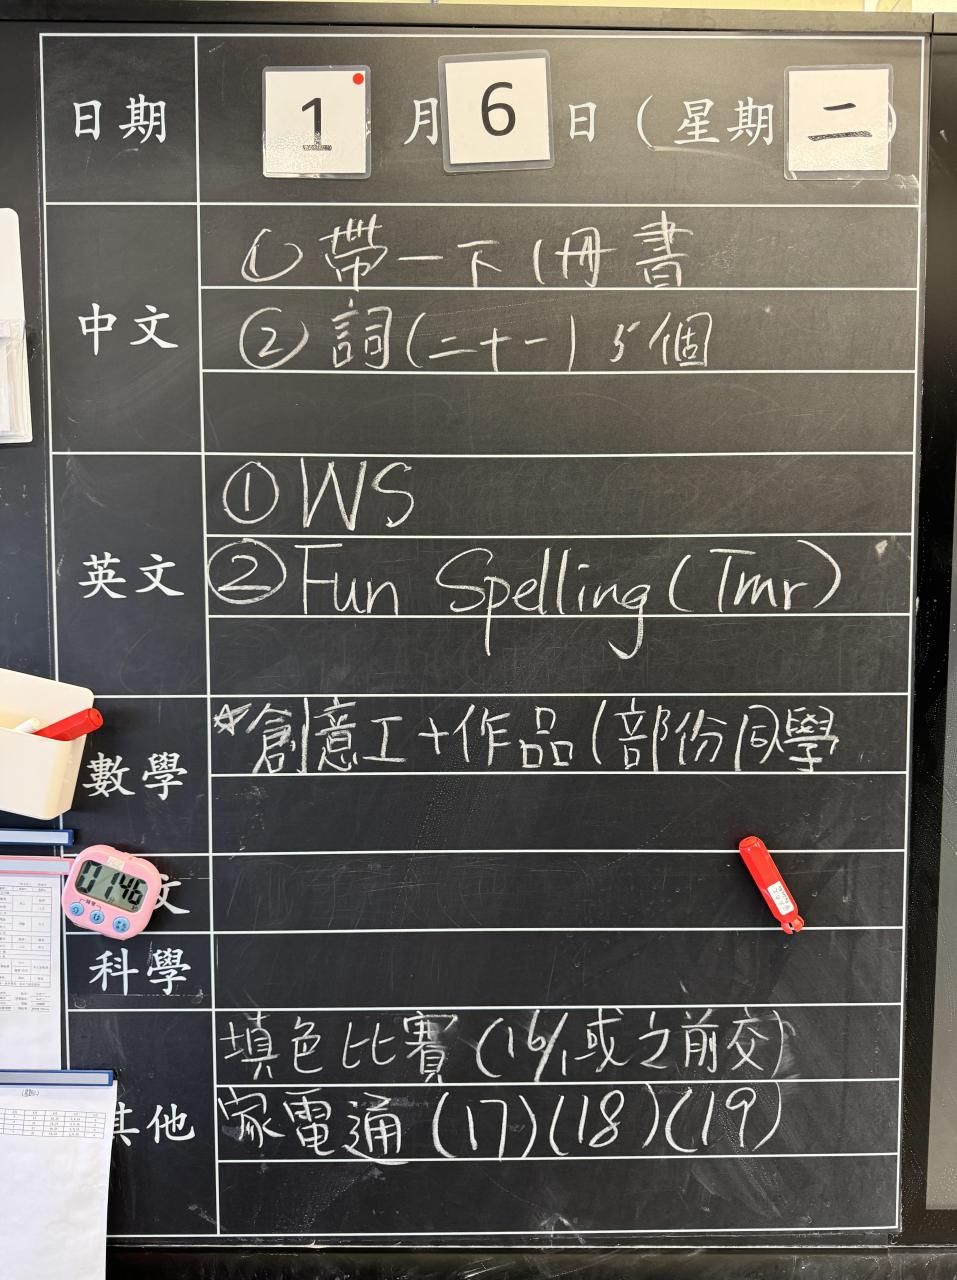 日期 1 月 6 日 (星期 二 )
中文
① 帶一下1冊書
② 詞(二十一) 5個
英文
① WS
② Fun Spelling (Tmr)
數學
☆創意工十作品(部份同學
0146
文
科學
其他
填色比賽 (16/1或之前交)
家電通 (17)(18)(19)